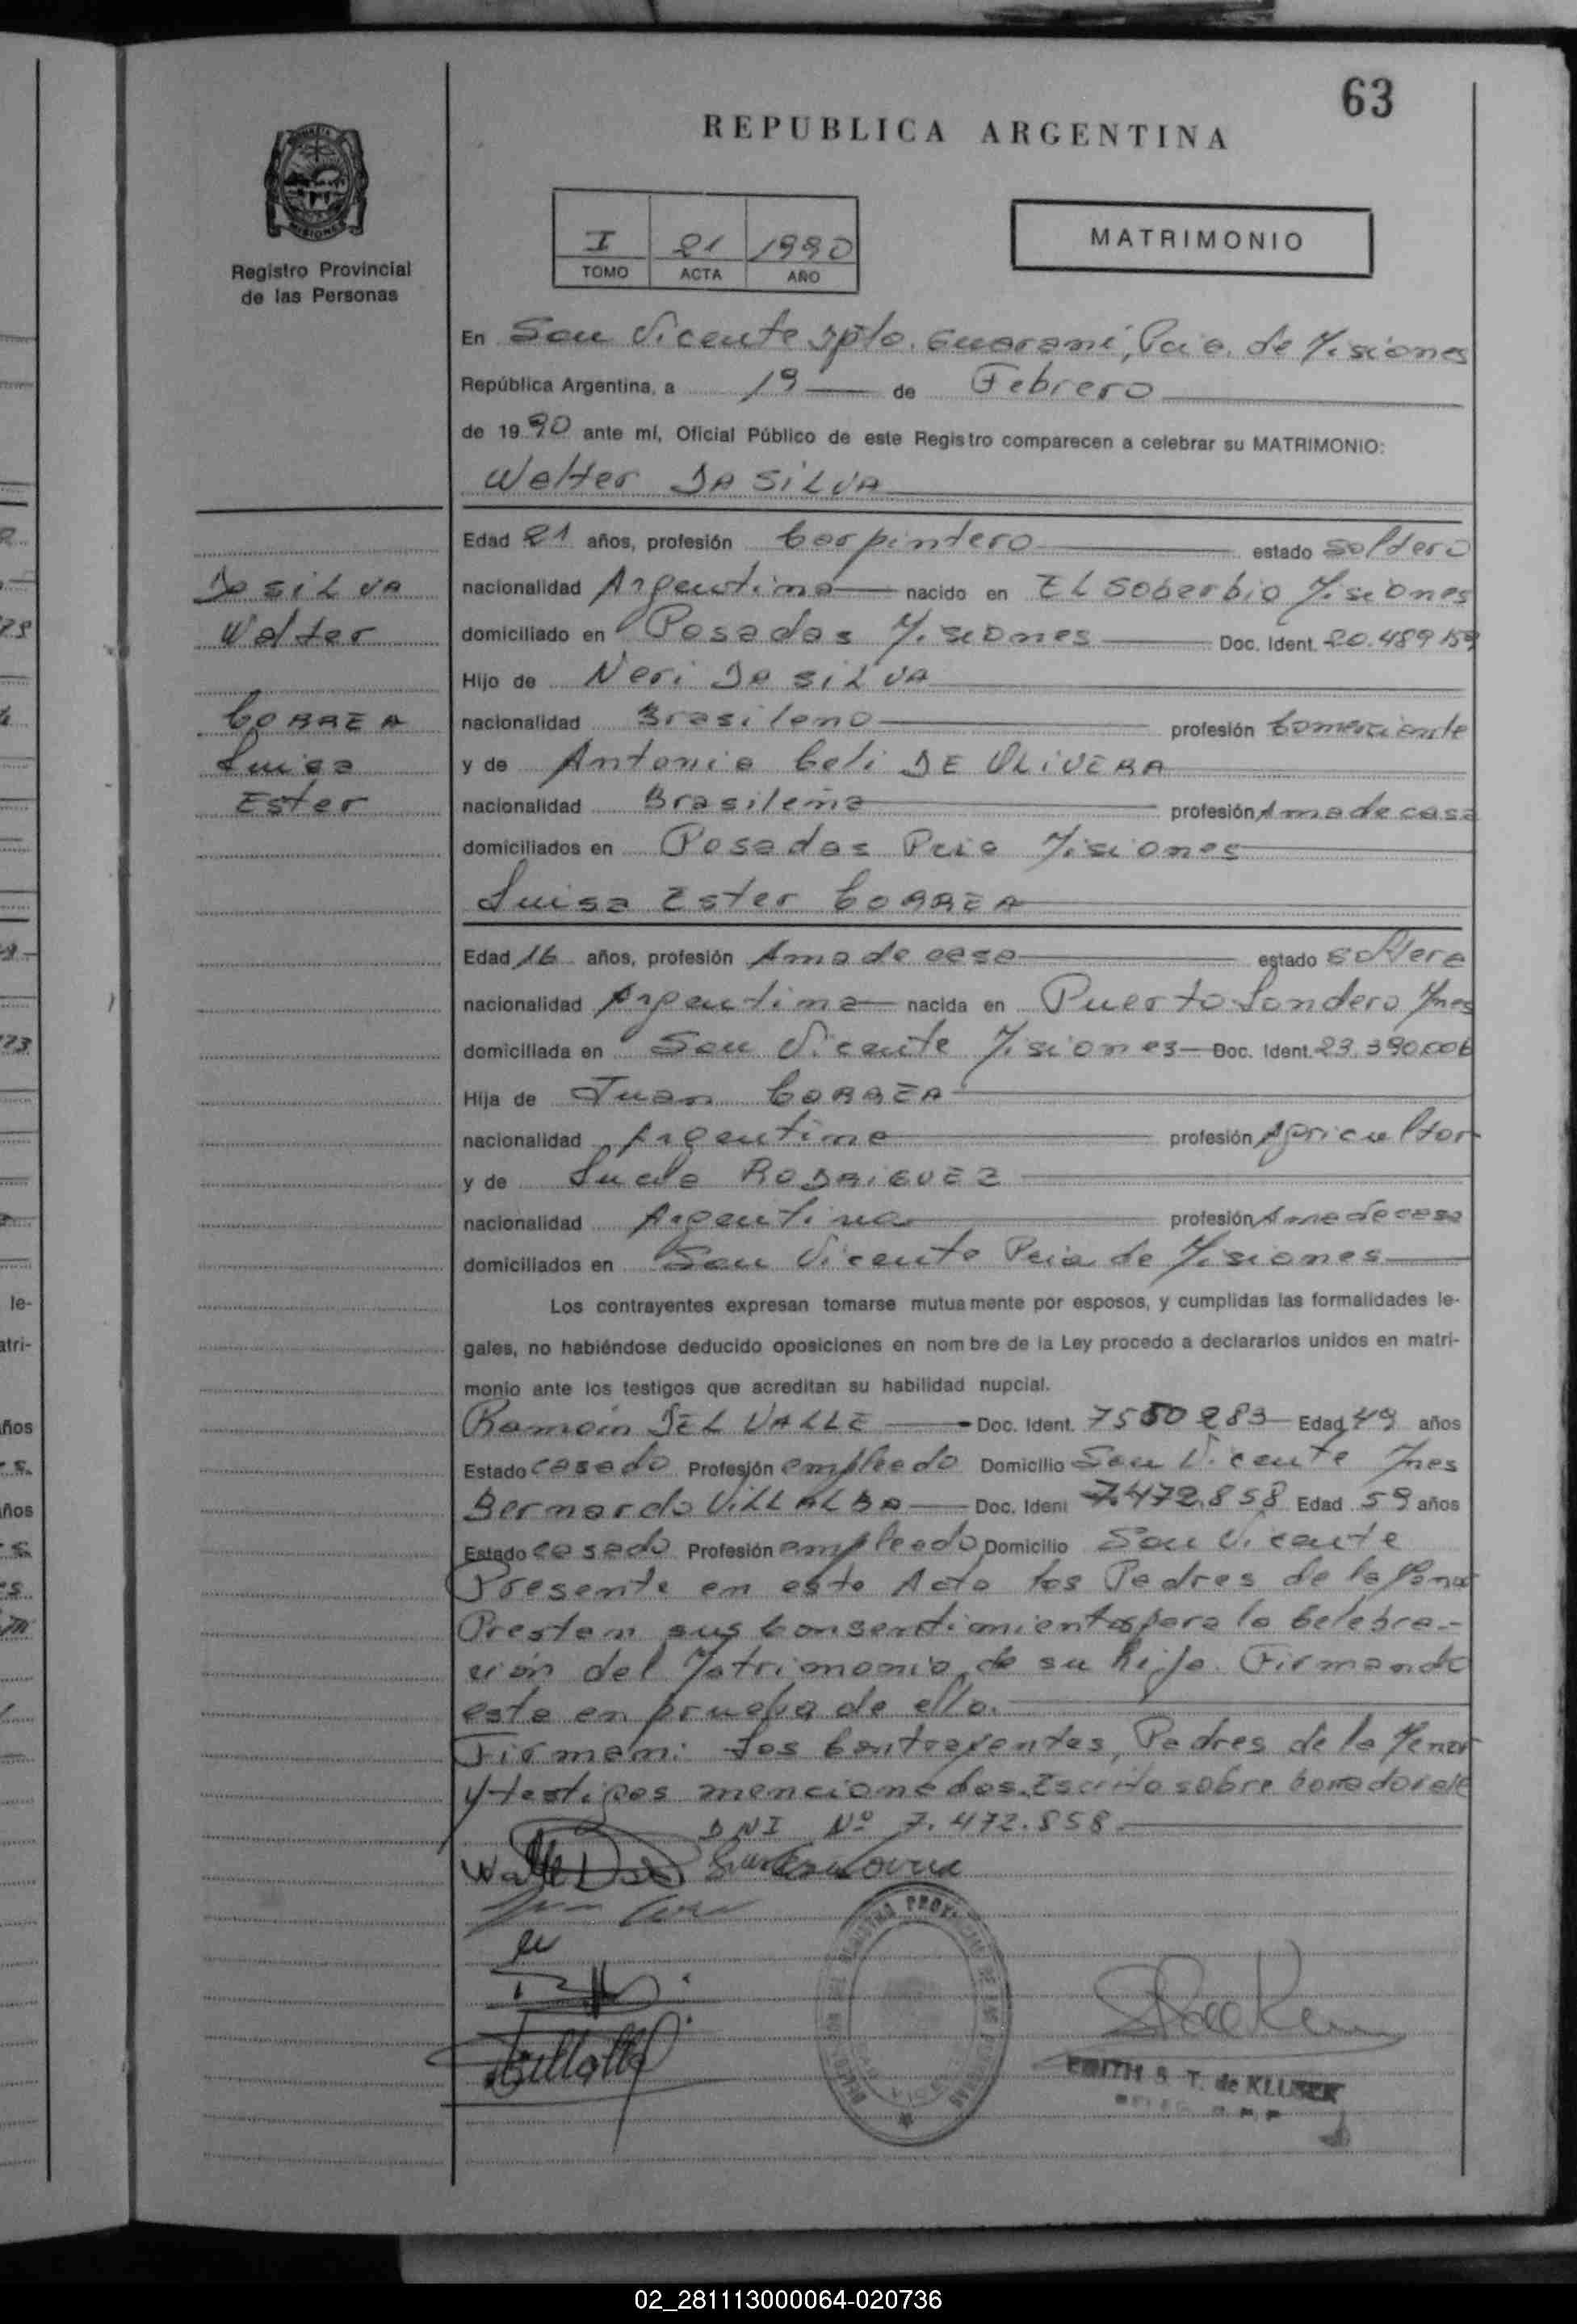 63
REPUBLICA ARGENTINA
MISIONES
Registro Provincial
de las Personas
I 21 1990
TOMO ACTA AÑO
MATRIMONIO
En San Vicente Dpto. Guaraní, Pcia. de Misiones
República Argentina, a 19 de Febrero
de 1990 ante mí, Oficial Público de este Registro comparecen a celebrar su MATRIMONIO:
Walter DA SILVA
Da SILVA
Walter
CORREA
Luisa
Ester
Edad 21 años, profesión Carpintero estado soltero
nacionalidad Argentina nacido en EL Soberbio Misiones
domiciliado en Posadas Misiones Doc. Ident. 20.489.159
Hijo de Neri Da SILVA
nacionalidad Brasileno profesión Comerciante
y de Antonia Celi DE OLIVERA
nacionalidad Brasileña profesión Ama de casa
domiciliados en Posadas Pcia Misiones
Luisa Ester CORREA
Edad 16 años, profesión Ama de casa estado soltera
nacionalidad Argentina nacida en Puerto Londero Mnes
domiciliada en San Vicente Misiones Doc. Ident. 23.390.006
Hija de Juan CORREA
nacionalidad Argentina profesión Agricultor
y de RODRIGUEZ
nacionalidad Argentina profesión Ama de casa
domiciliados en San Vicente Pcia de Misiones
Los contrayentes expresan tomarse mutuamente por esposos, y cumplidas las formalidades le-
gales, no habiéndose deducido oposiciones en nombre de la Ley procedo a declararlos unidos en matri-
monio ante los testigos que acreditan su habilidad nupcial.
Ramón DEL VALLE Doc. Ident. 7550283 Edad 49 años
Estado casado Profesión empleado Domicilio San Vicente Mnes
Bernardo VILLALBA Doc. Ident 7.472.858 Edad 59 años
Estado casado Profesión empleado Domicilio San Vicente
Presente en este Acto los Padres de la
Prestan sus consentimientos para la Celebra-
ción del Matrimonio de su hija. Firmando
esta en prueba de ello.
Firman: Los Contrayentes, Padres de la Menor
y testigos mencionados. Escrito sobre borrador vale
DNI Nº 7.472.858.
EDITH S. T. de KLUSEK
02_281113000064-020736